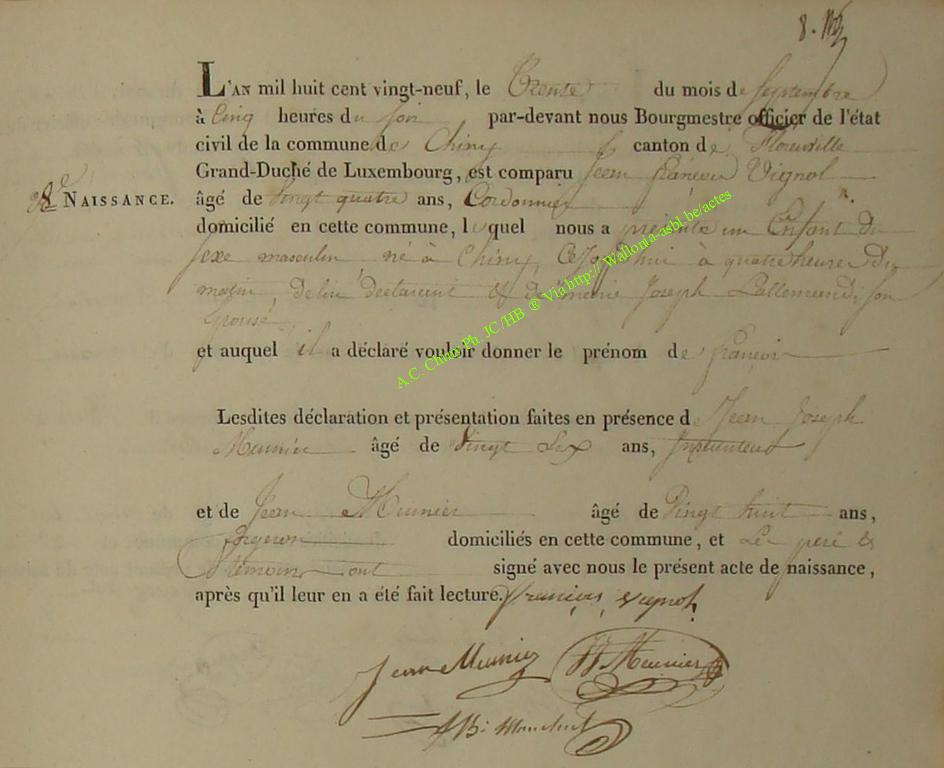 8.
L'AN mil huit cent vingt-neuf, le Trente du mois de Septembre
à Cinq heures du soir par-devant nous Bourgmestre officier de l'état
civil de la commune de Chiny canton de Florenville
Grand-Duché de Luxembourg, est comparu Jean françois Vignol
NAISSANCE. âgé de Vingt quatre ans, Cordonnier
domicilié en cette commune, lequel nous a présenté un Enfant du
sexe masculin, né à Chiny, Cejourd'hui à quatre heures du
matin, de lui déclarant & de marie Joseph Lallemand, son
Epouse,
et auquel il a déclaré vouloir donner le prénom de françois
Lesdites déclaration et présentation faites en présence de Jean Joseph
Meunier âgé de Vingt Six ans, Instituteur
et de Jean Meunier âgé de Vingt huit ans,
forgeron domiciliés en cette commune, et Le père &
témoins ont signé avec nous le présent acte de naissance,
après qu'il leur en a été fait lecture. françois vignol
Jean Meunier JJ Meunier
A.C. Chiny Ph. JC/HB ® Via http://Wallonia-asbl.be/actes